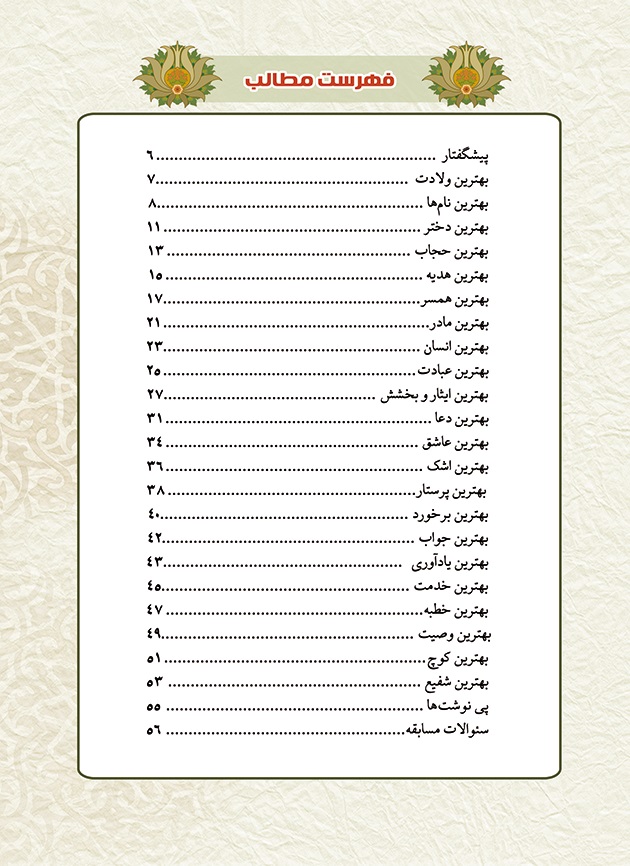 فهرست مطالب
پیشگفتار ............................................................... ٦
بهترین ولادت ........................................................٧
بهترین نام‌ها ...........................................................٨
بهترین دختر ......................................................... ١١
بهترین حجاب ...................................................... ١٣
بهترین هدیه ......................................................... ١٥
بهترین همسر.........................................................١٧
بهترین مادر........................................................... ٢١
بهترین انسان .........................................................٢٣
بهترین عبادت........................................................ ٢٥
بهترین ایثار و بخشش ...............................................٢٧
بهترین دعا ........................................................... ٣١
بهترین عاشق ........................................................ ٣٤
بهترین اشک ......................................................... ٣٦
بهترین پرستار....................................................... ٣٨
بهترین برخورد .......................................................٤٠
بهترین جواب ........................................................٤٢
بهترین یادآوری .....................................................٤٣
بهترین خدمت .......................................................٤٥
بهترین خطبه......................................................... ٤٧
بهترین وصیت ........................................................٤٩
بهترین کوچ.......................................................... ٥١
بهترین شفیع ........................................................ ٥٣
پی نوشت‌ها ......................................................... ٥٥
سئوالات مسابقه..................................................... ٥٦